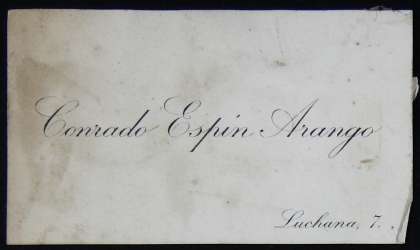 Conrado Espín Arango
Luchana, 7.